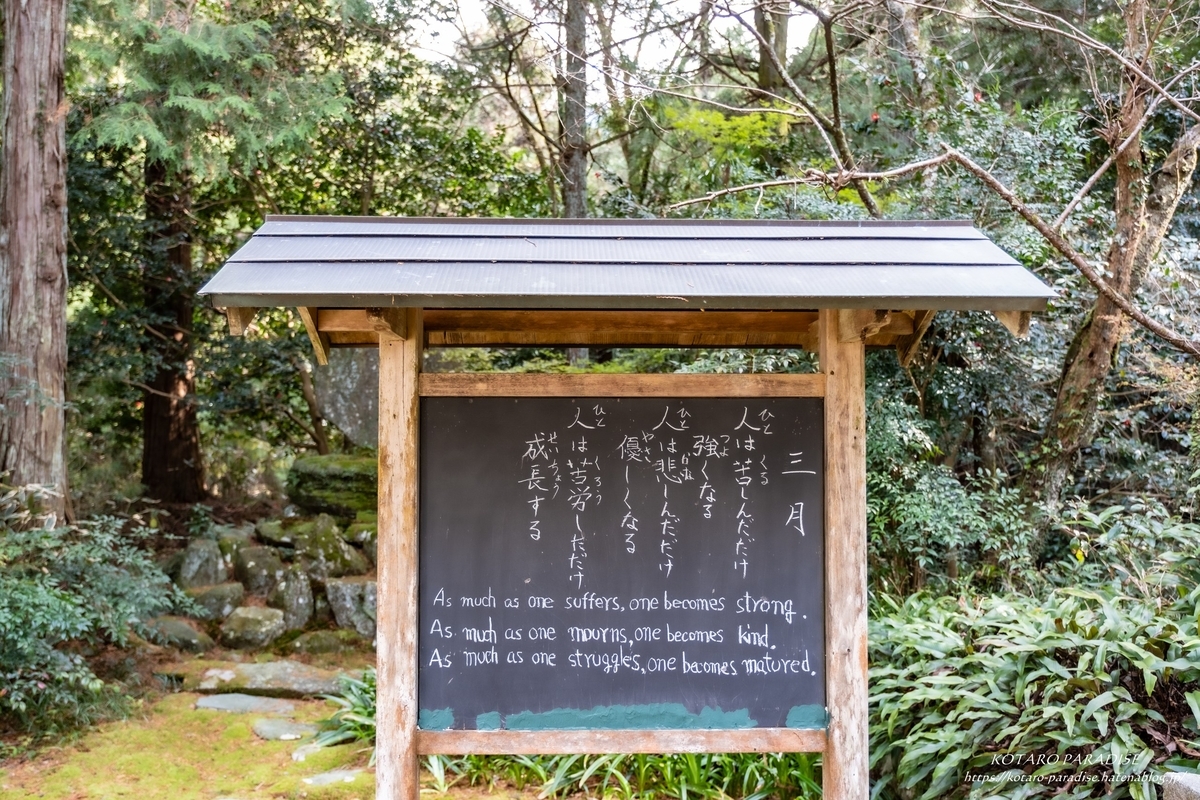 三月
人は苦しんだだけ
強くなる
人は悲しんだだけ
優しくなる
人は苦労しただけ
成長する
ひと
くる
つよ
ひと
かな
やさ
ひと
くろう
せいちょう
As much as one suffers, one becomes strong.
As much as one mourns, one becomes kind.
As much as one struggles, one becomes matured.
KOTARO PARADISE
https://kotaro-paradise.hatenablog.jp/